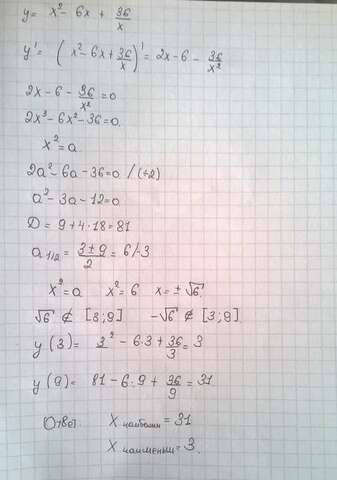 y = x² - 6x + 36/x
y' = (x² - 6x + 36/x)' = 2x - 6 - 36/x²
2x - 6 - 36/x² = 0
2x³ - 6x² - 36 = 0.
x² = a
2a² - 6a - 36 = 0 / (÷2)
a² - 3a - 12 = 0
D = 9 + 4·18 = 81
a 1/2 = (3 ± 9)/2 = 6/-3
x² = a x² = 6 x = ± √6
√6 ∉ [3; 9] -√6 ∉ [3; 9]
y(3) = 3² - 6·3 + 36/3 = 3
y(9) = 81 - 6·9 + 36/9 = 31
Ответ: X наибольш = 31
X наименьш = 3.